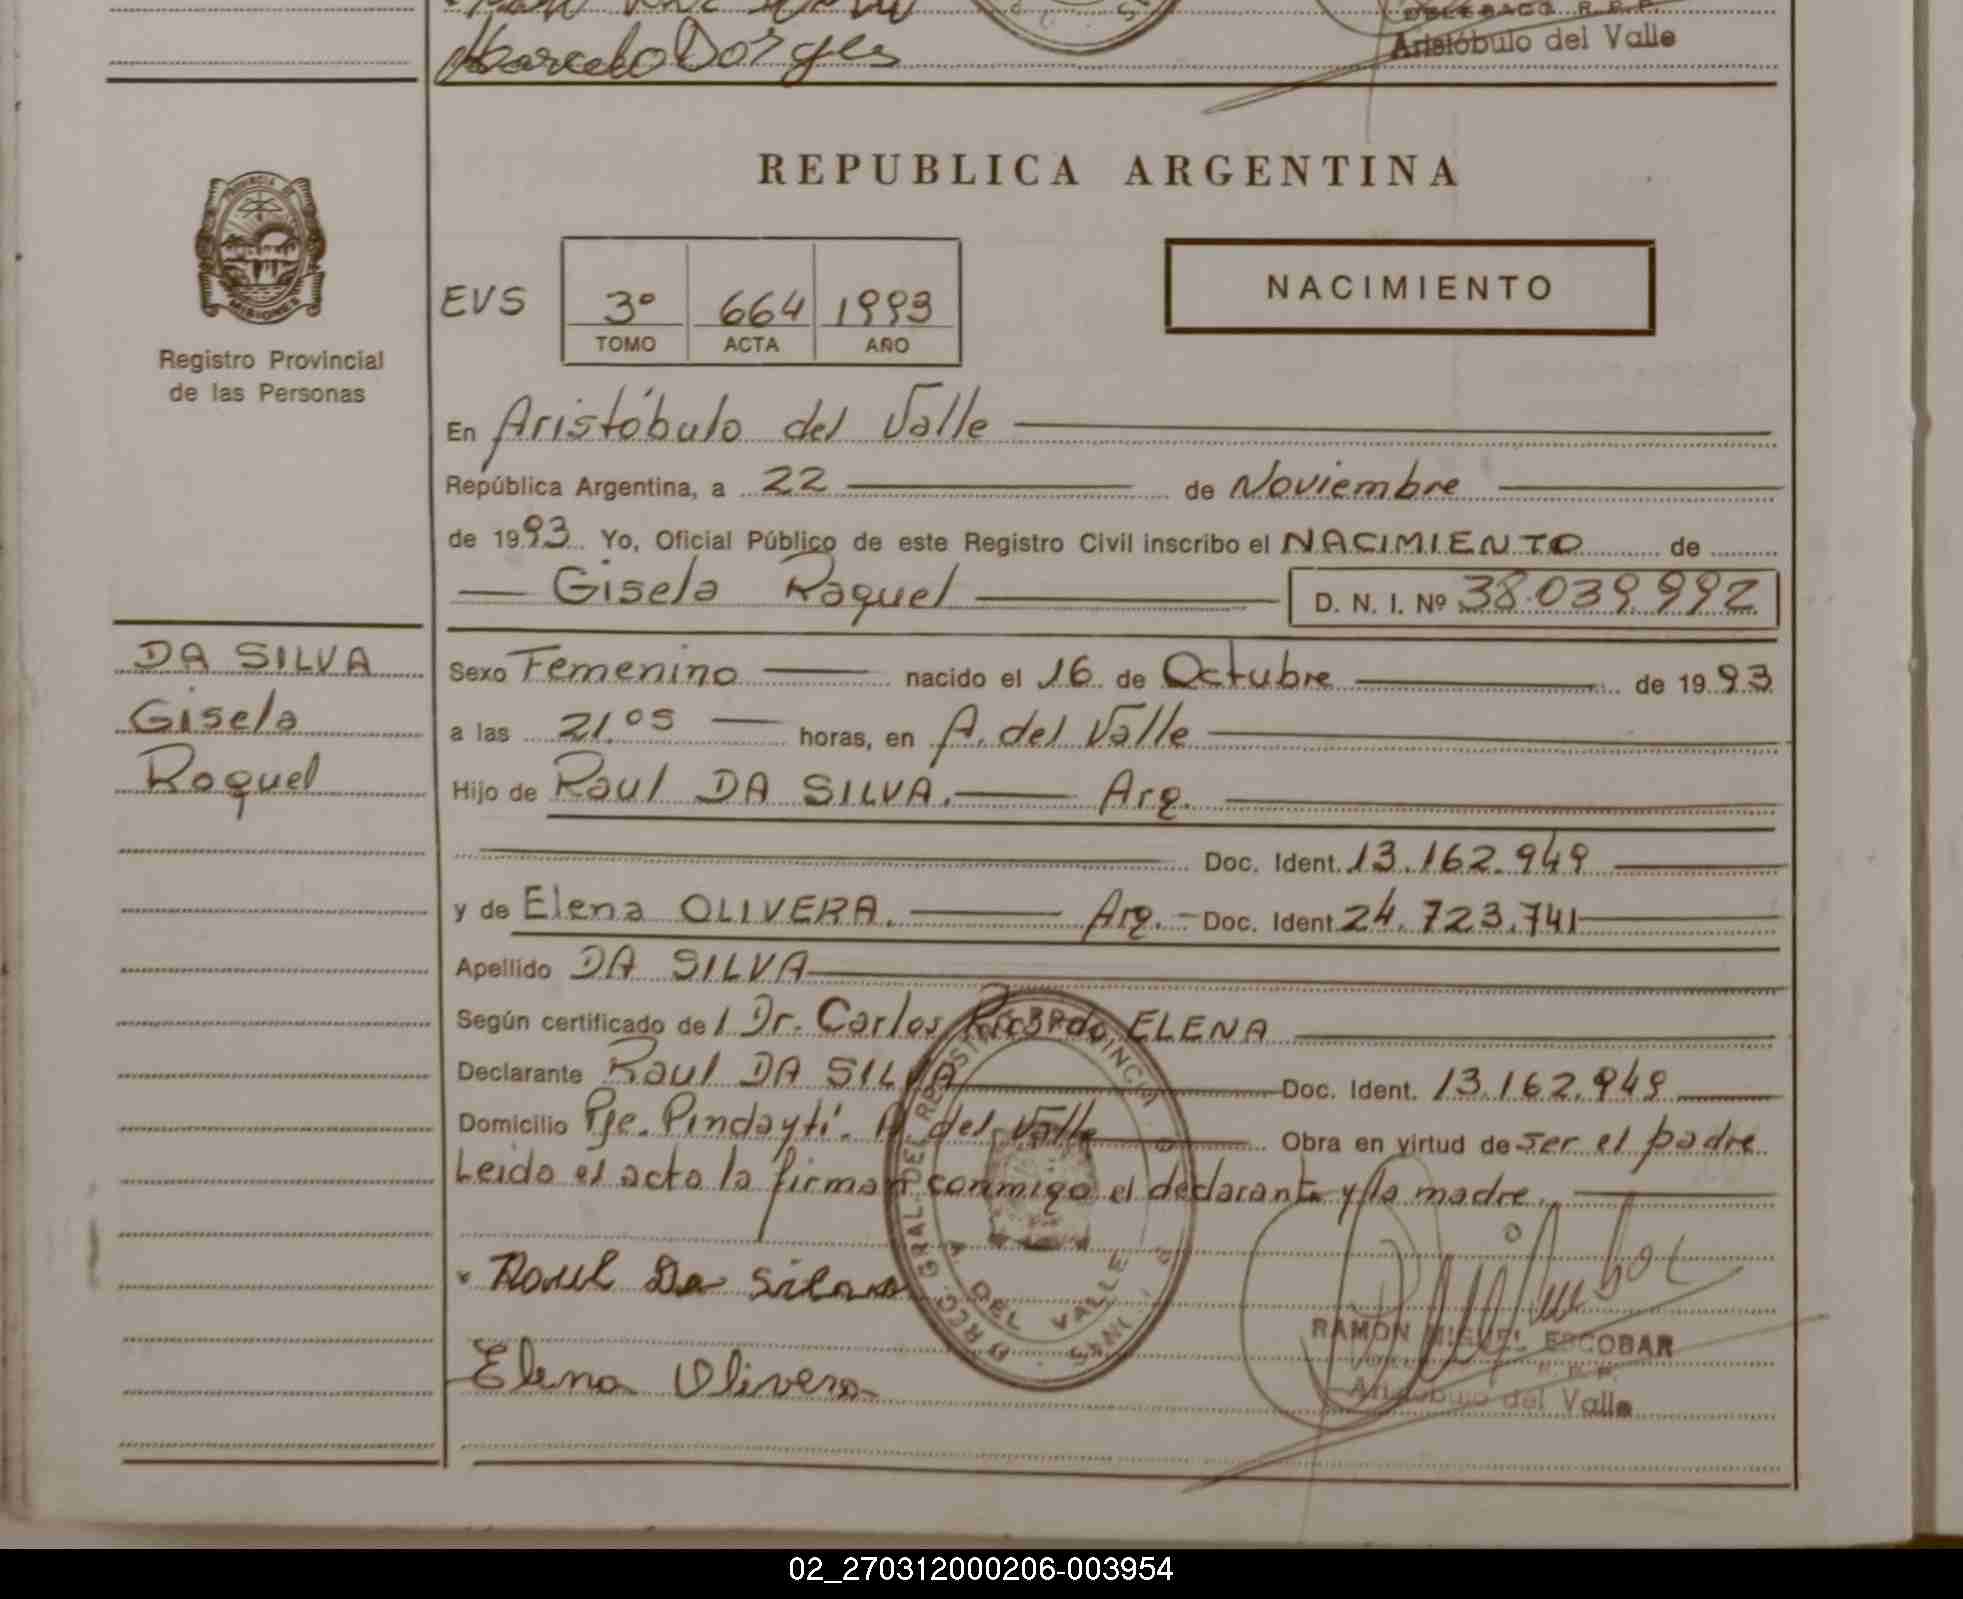 Marcelo Borges
Aristóbulo del Valle
REPUBLICA ARGENTINA
PROVINCIA DE
MISIONES
Registro Provincial
de las Personas
EVS
3º 664 1993
TOMO ACTA AÑO
NACIMIENTO
En Aristóbulo del Valle
República Argentina, a 22 de Noviembre
de 1993 Yo, Oficial Público de este Registro Civil inscribo el NACIMIENTO de
Gisela Raquel D. N. I. Nº 38.039.992
DA SILVA
Gisela
Raquel
Sexo Femenino nacido el 16 de Octubre de 1993
a las 21.05 horas, en A. del Valle
Hijo de Raul DA SILVA. Arg.
Doc. Ident. 13.162.949
y de Elena OLIVERA. Arg. Doc. Ident. 24.723.741
Apellido DA SILVA
Según certificado de l Dr. Carlos Ricardo ELENA
Declarante Raul DA SILVA Doc. Ident. 13.162.949
Domicilio Pje. Pindaytí. A. del Valle Obra en virtud de ser el padre
Leido el acta la firman conmigo el declarante y la madre.
Raul Da Silva
Elena Olivera
DEL VALLE
RAMON MIGUEL ESCOBAR
R. R. P.
Aristóbulo del Valle
02_270312000206-003954